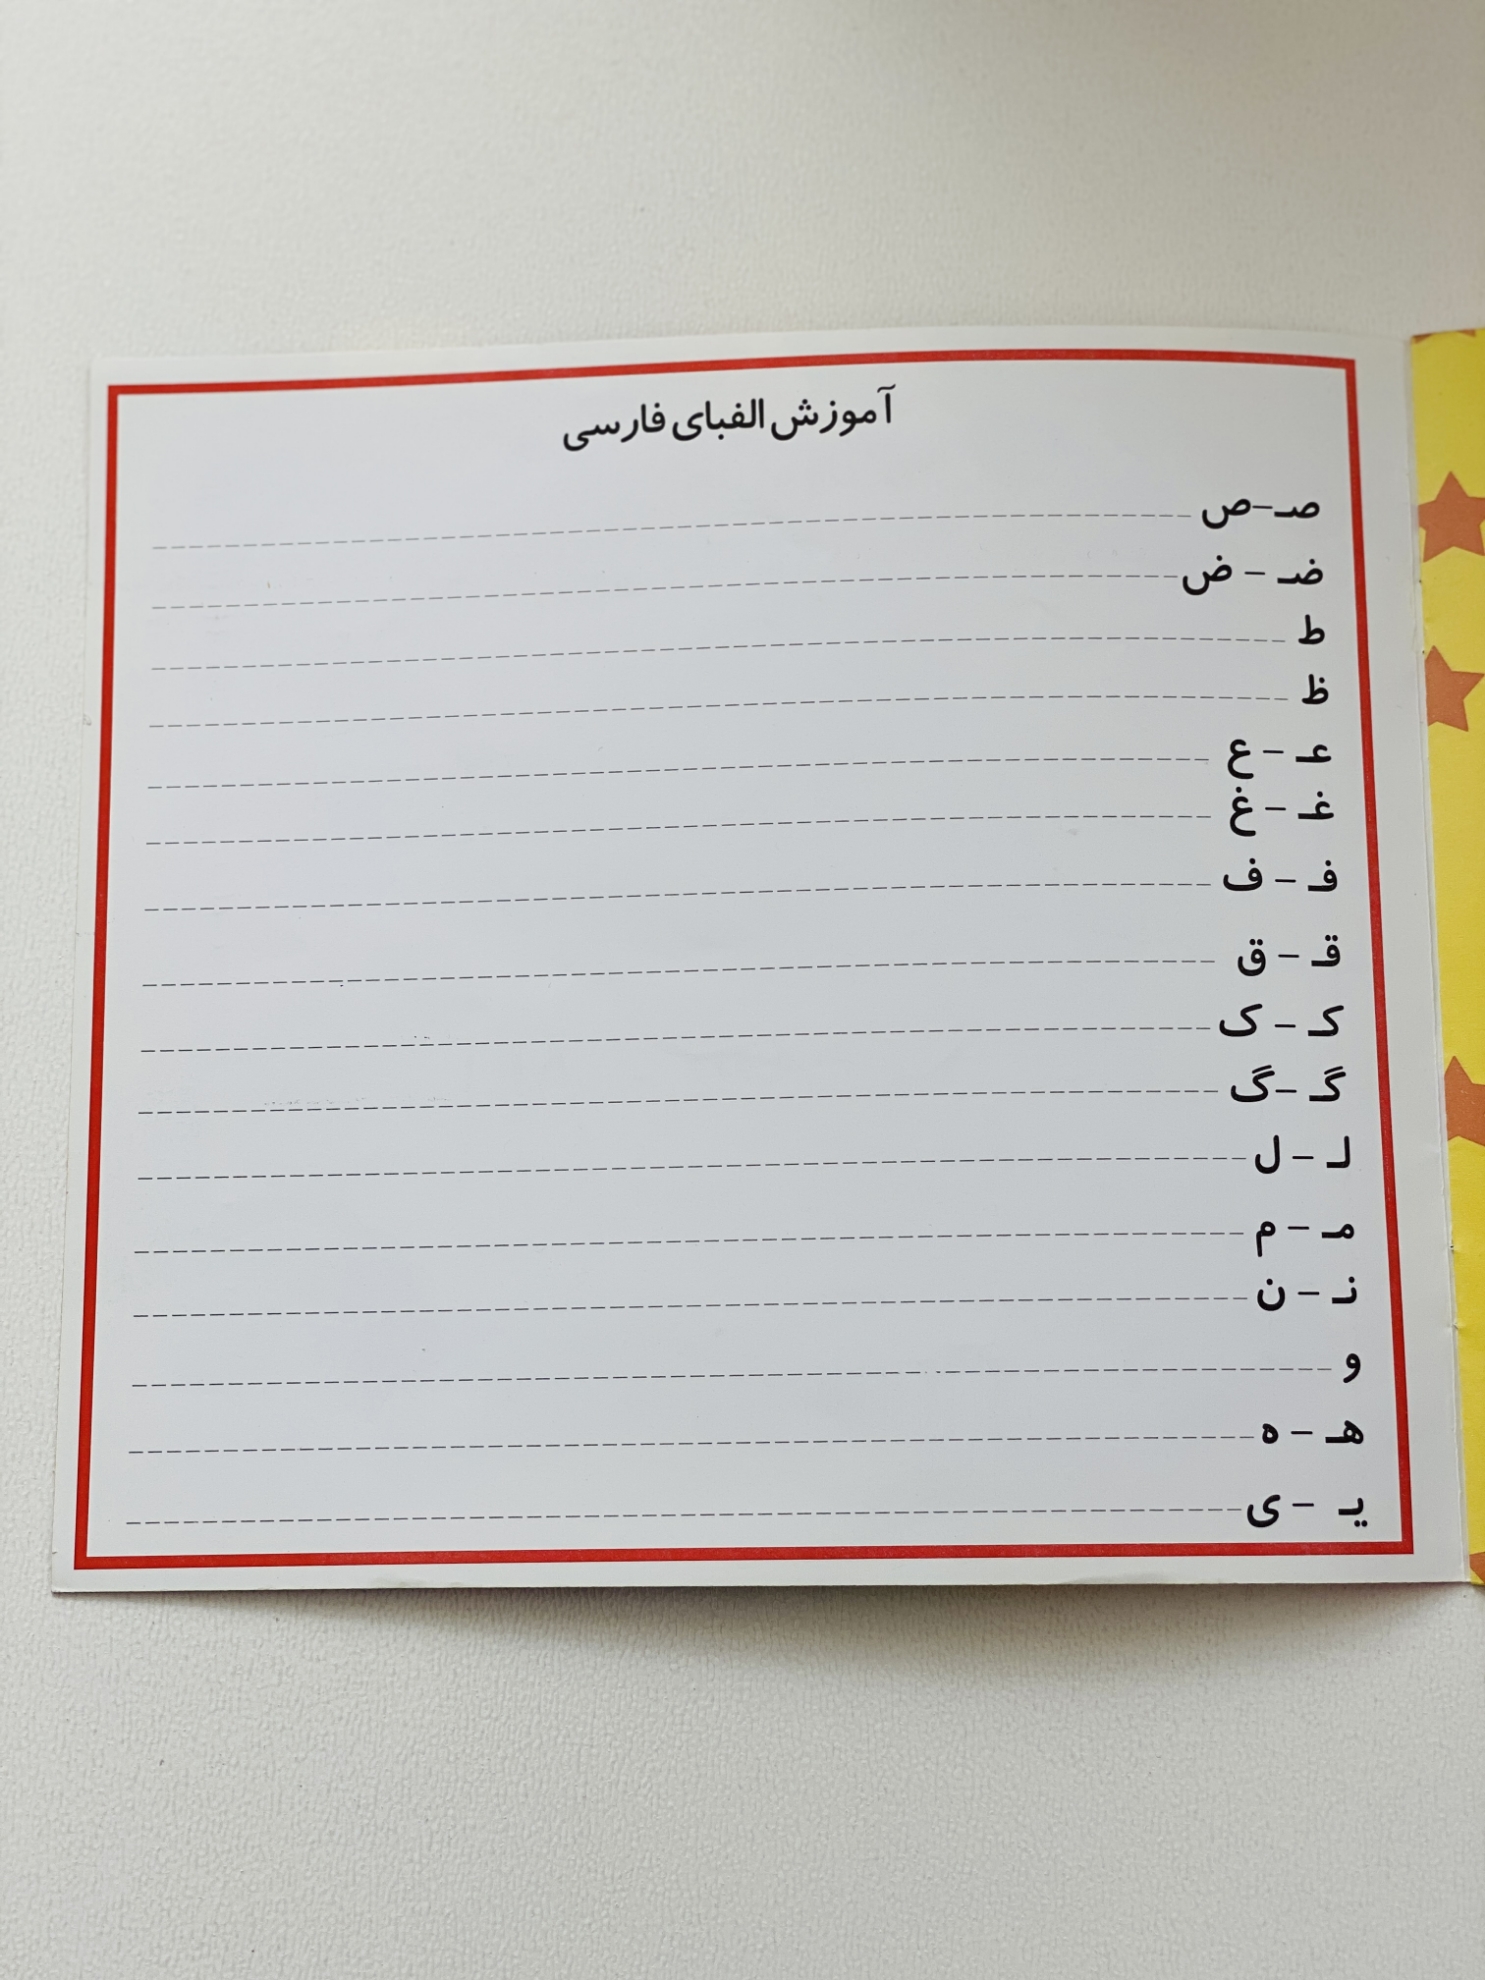 آموزش الفبای فارسی
صـ-ص
ضـ - ض
ط
ظ
عـ - ع
غـ - غ
فـ - ف
قـ - ق
کـ - ک
گـ -گ
لـ - ل
مـ - م
نـ - ن
و
هـ - ه
یـ - ی